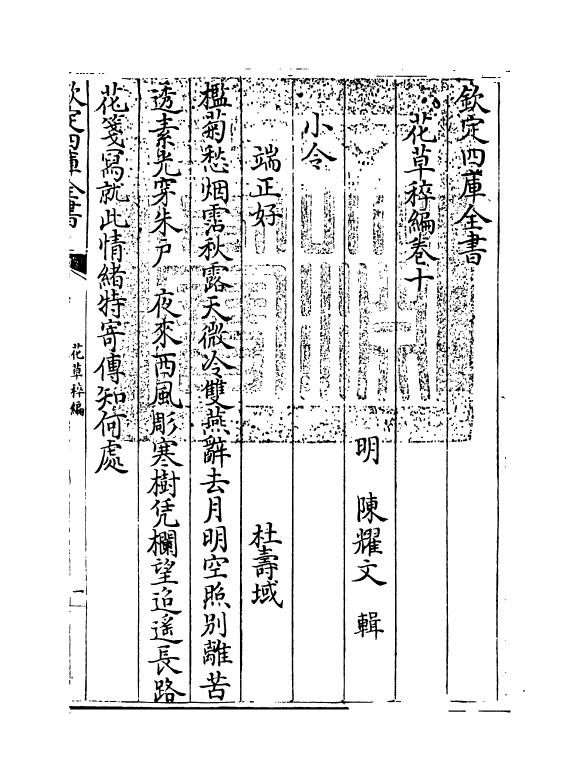 欽定四庫全書
花草稡編卷十
明 陳耀文 輯
小令
端正好 杜壽域
檻菊愁烟霑秋露天微冷雙燕辭去月明空照别離苦
透素光穿朱戶 夜來西風彫寒樹凭欄望迢遥長路
花箋寫就此情緒特寄傳知何處
欽定四庫全書
花草稡編
一